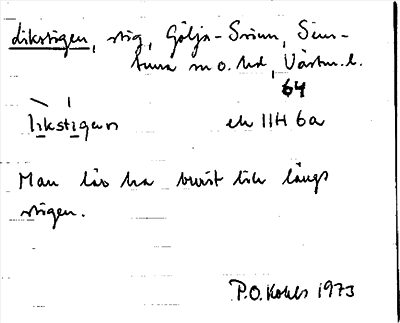 Likstigen, stig, Gölja-Simm, Sim-
tuna sn o. hd, Västm. l.
64
likstigen ek 11H 6a
Man lär ha burit lik längs
stigen.
P.O. Kohls 1973